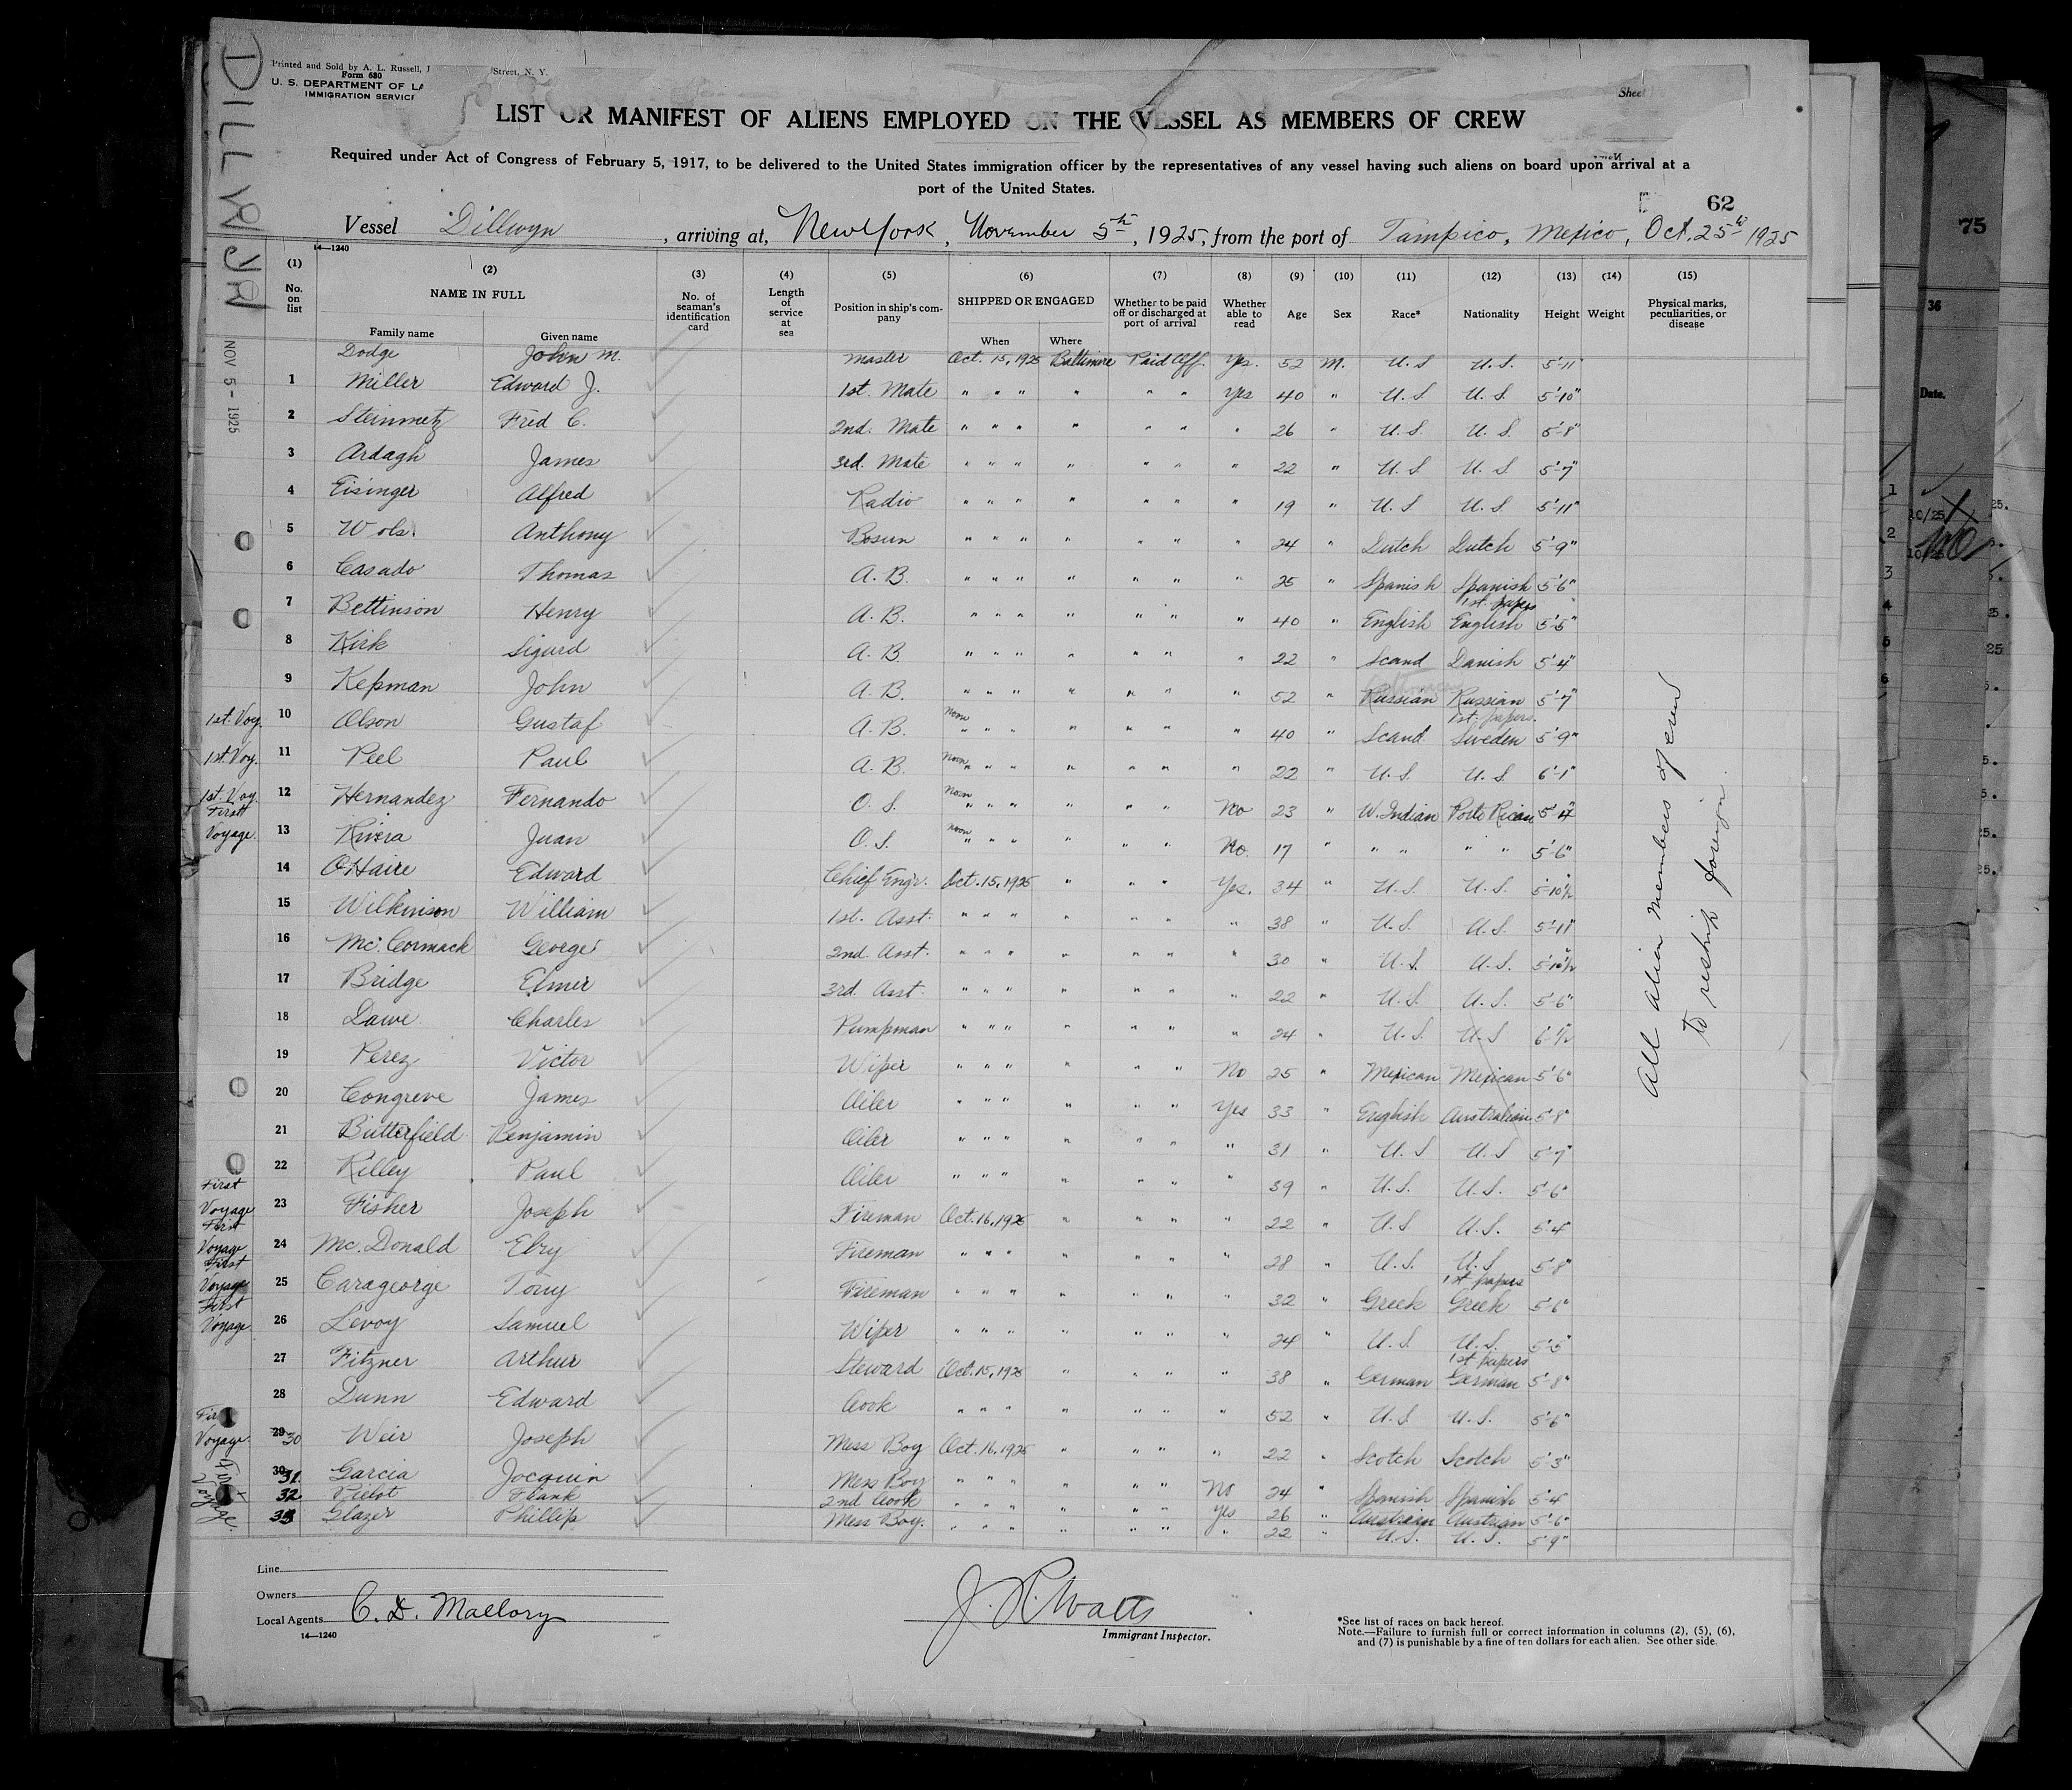 DILLWYN
NOV 5 - 1925
Printed and Sold by A. L. Russell, Street, N. Y.
Form 680
U. S. DEPARTMENT OF LA
IMMIGRATION SERVICE
Sheet
LIST OR MANIFEST OF ALIENS EMPLOYED ON THE VESSEL AS MEMBERS OF CREW
Required under Act of Congress of February 5, 1917, to be delivered to the United States immigration officer by the representatives of any vessel having such aliens on board upon arrival at a
port of the United States.
62
Vessel Dillwyn, arriving at, New York, November 5th, 1925, from the port of Tampico, Mexico, Oct. 25th 1925
14—1240
(1) (2) (3) (4) (5) (6) (7) (8) (9) (10) (11) (12) (13) (14) (15)
No. on list NAME IN FULL Family name Given name No. of seaman's identification card Length of service at sea Position in ship's company SHIPPED OR ENGAGED When Where Whether to be paid off or discharged at port of arrival Whether able to read Age Sex Race* Nationality Height Weight Physical marks, peculiarities, or disease
Dodge John M. Master Oct. 15, 1925 Baltimore Paid Off Yes. 52 M. U.S U.S. 5'-11
1 Miller Edward J. 1st. Mate " " " " " " Yes 40 " U.S U.S 5'-10"
2 Steinmetz Fred C. 2nd. Mate " " " " " " " 26 " U.S. U.S. 5'-8"
3 Ardagh James 3rd. Mate " " " " " " " 22 " U.S U.S 5'-7"
4 Eisinger Alfred Radio " " " " " " " 19 " U.S U.S. 5'-11"
5 Wols. Anthony Bosun " " " " " " " 24 " Dutch Dutch 5'-9"
6 Casado Thomas A.B. " " " " " " " 25 " Spanish Spanish 5'6"
7 Bettinson Henry A.B. " " " " " " " 40 " English 1st. papers English 5'-5"
8 Kirk Sigurd A.B. " " " " " " " 22 " Scand Danish 5'-4"
9 Kepman John A.B. " " " " " " " 52 " Russian Russian 5'-7"
1st. Voy. 10 Olson Gustaf A.B. Noon " " " " " " " 40 " Scand. 1st. papers. Sweden 5'-9"
1st. Voy. 11 Peel Paul A.B. Noon " " " " " " " 22 " U.S. U.S 6'-1"
1st. Voy. 12 Hernandez Fernando O.S. Noon " " " " " " No 23 " W. Indian Porto Rican 5'-4"
First Voyage. 13 Rivera Juan O.S. Noon " " " " " " No. 17 " " " " " 5'-6"
14 O'Haire Edward Chief Engr. Oct. 15, 1925 " " " Yes. 34 " U.S. U.S. 5'-10½
15 Wilkinson William 1st. Asst. " " " " " 38 " U.S. U.S. 5'-11"
16 Mc. Cormack George 2nd. Asst. " " " " " " " 30 " U.S. U.S. 5'-10½
17 Bridge Elmer 3rd. Asst. " " " " " " " 22 " U.S. U.S. 5'-6"
18 Dawe Charles Pumpman " " " " " " " 24 " U.S. U.S 6'-½
19 Perez Victor Wiper " " " " " " No 25 " Mexican Mexican 5'-6"
20 Congreve James Oiler " " " " " " Yes 33 " English Australian 5'-8"
21 Butterfield Benjamin Oiler " " " " " " " 31 " U.S U.S 5'-7"
22 Rilley Paul Oiler " " " " " " 39 " U.S. U.S. 5'-6"
First Voyage 23 Fisher Joseph Fireman Oct. 16, 1925 " " " " 22 " U.S U.S. 5'-4"
First Voyage 24 Mc. Donald Ebry Fireman " " " " " " 28 " U.S. U.S 5'-8"
First Voyage 25 Carageorge Tony Fireman " " " " " " " 32 " Greek 1st papers Greek 5'-6"
First Voyage 26 Levoy Samuel Wiper " " " " " " " 24 " U.S. U.S. 5'-5"
27 Fitzner Arthur Steward Oct. 15, 1925 " " " " 38 " German 1st papers German 5'-8"
28 Dunn Edward Cook " " " " " " " 52 " U.S. U.S. 5'-6"
First Voyage 29 30 Weir Joseph Mess Boy Oct. 16, 1925 " " " " 22 " Scotch Scotch 5'-3"
First Voyage. 30 31. Garcia Jocquin Mess Boy " " " " " " No 24 " Spanish Spanish 5'-4"
32 Frank 2nd Cook " " " " " " Yes 26 " Austrian Austrian 5'-6"
33 Glazer Phillip Mess Boy. " " " " " " " 22 " U.S. U.S. 5'-9"
All alien members of crew
to reship foreign.
Line
Owners
Local Agents C. D. Mallory
14—1240
J. R. Watts
Immigrant Inspector.
*See list of races on back hereof.
Note.—Failure to furnish full or correct information in columns (2), (5), (6),
and (7) is punishable by a fine of ten dollars for each alien. See other side.
75
36
Date.
1
2
3
4
5
6
10/25